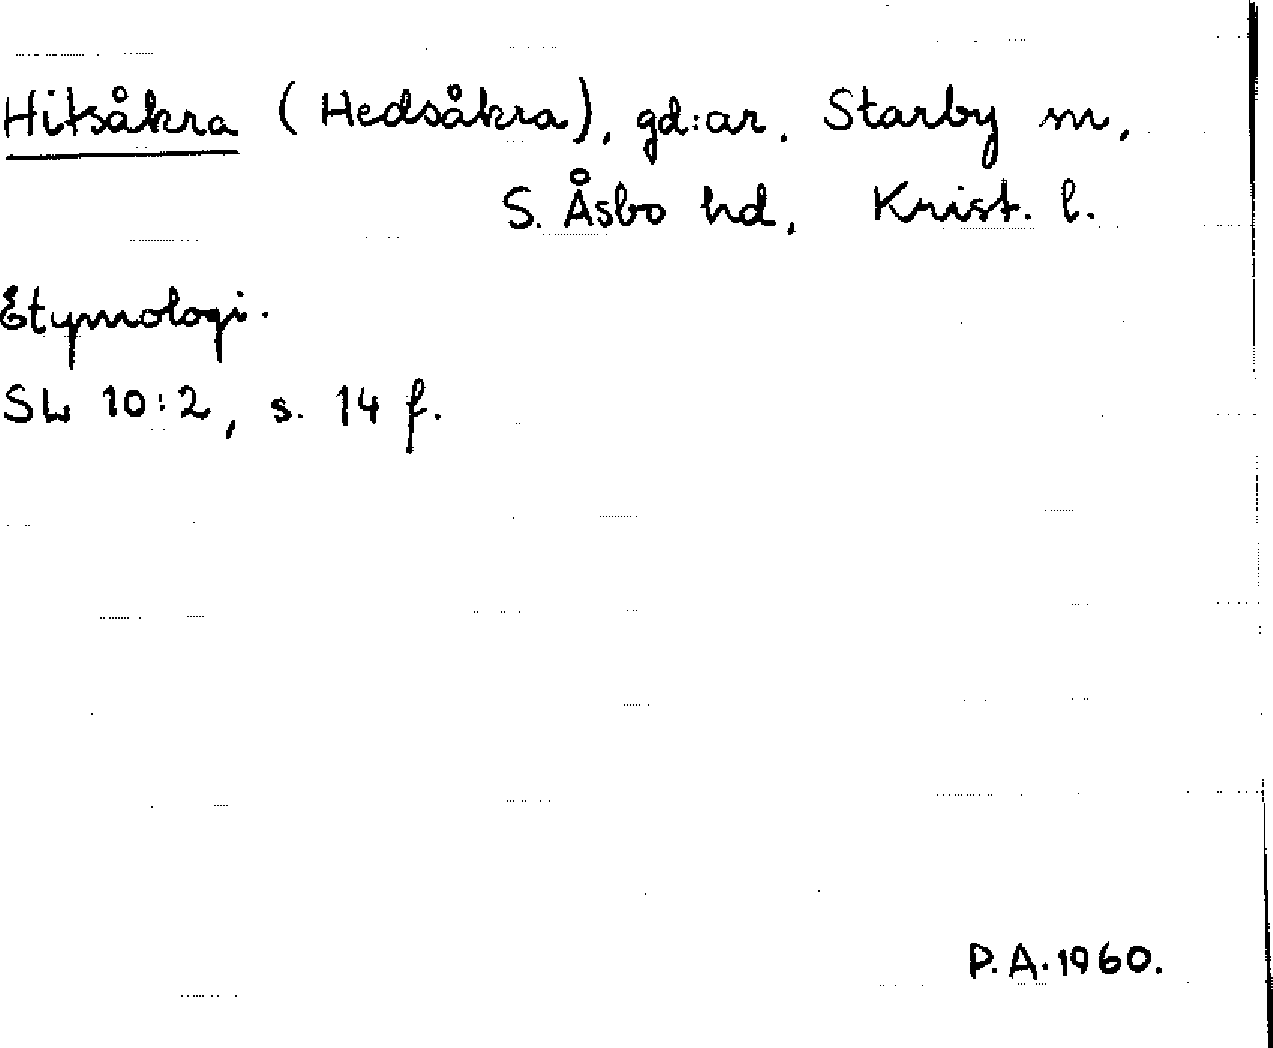 Hitsåkra (Hedsåkra), gd:ar. Starby sn,
S. Åsbo hd, Krist. l.
Etymologi.
SL 10:2, s. 14 f.
P.A. 1960.